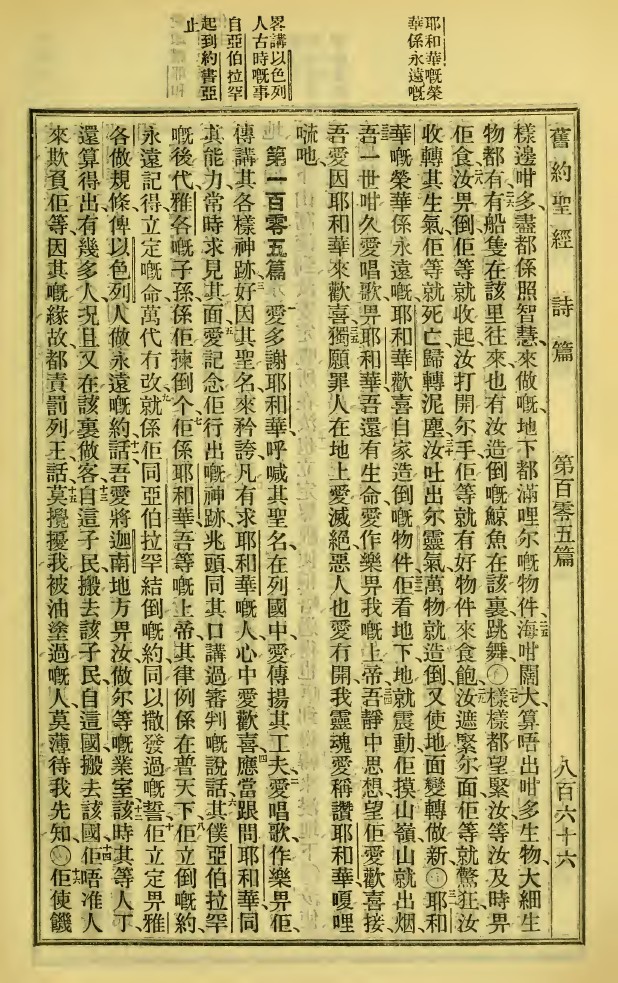 耶和華嘅榮
華係永遠嘅
畧講以色列
人古時嘅事
自亞伯拉罕
起到約書亞
止
舊約聖經 詩篇 第百零五篇 八百六十六
樣邊咁多、盡都係照智慧、來做嘅地下都滿哩尔嘅物件、二五海咁闊大、算唔出咁多生物、大細生
物都有、二六有船隻在該里往來、也有汝造倒嘅鯨魚在該裏跳舞、○二七樣樣都望緊汝等汝及時畀
佢食、二八汝畀倒佢等就收起、汝打開尔手、佢等就有好物件來食飽、二九汝遮緊尔面、佢等就驚狂、汝
收轉其生氣、佢等就死亡、歸轉泥塵、三十汝吐出尔靈氣、萬物就造倒、又使地面變轉做新、○三一耶和
華嘅榮華係永遠嘅、耶和華歡喜自家造倒嘅物件、三二佢看地下、地就震動、佢摸山嶺、山就出烟、
三三吾一世咁久愛唱歌畀耶和華、吾還有生命、愛作樂畀我嘅上帝、三四吾靜中思想望佢愛歡喜接、
吾愛因耶和華來歡喜、三五獨願罪人在地上愛滅絕、惡人也愛有開、我靈魂愛稱讚耶和華、嗄哩
嚧吔、
第一百零五篇 一愛多謝耶和華、呼喊其聖名、在列國中愛傳揚其工夫、二愛唱歌作樂畀佢、
傳講其各樣神跡、三好因其聖名來矜誇、凡有求耶和華嘅人、心中愛歡喜、四應當跟問耶和華、同
其能力、常時求見其面、五愛記念佢行出嘅神跡、兆頭、同其口講過審判嘅說話、六其僕亞伯拉罕
嘅後代、雅各嘅子孫、係佢揀倒个、七佢係耶和華、吾等嘅上帝、其律例係在普天下、八佢立倒嘅約、
永遠記得、立定嘅命、萬代有改、九就係佢同亞伯拉罕結倒嘅約、同以撒發過嘅誓、十佢立定畀雅
各做規條、俾以色列人做永遠嘅約、十一話、吾愛將迦南地方畀汝、做尔等嘅業室、十二該時其等人丁
還算得出、有幾多人、况且又在該裏做客、十三自這子民搬去該子民、自這國搬去該國、十四佢唔准人
來欺負佢等、因其嘅緣故、都責罰列王、十五話、莫攪擾我被油塗過嘅人、莫薄待我先知、○十六佢使饑